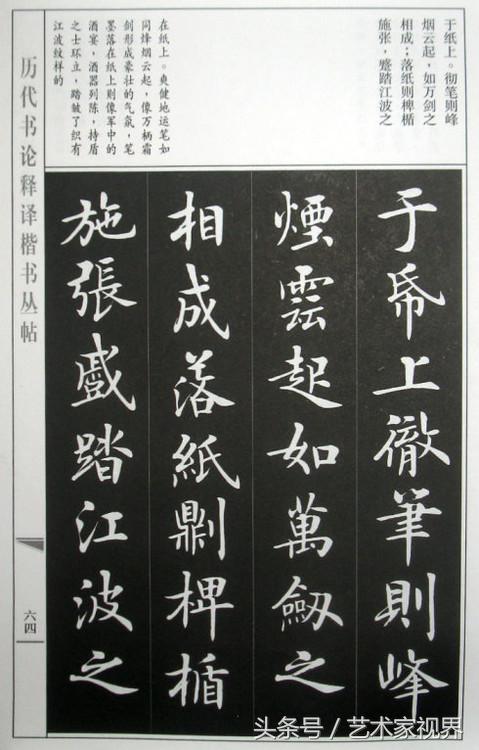 于纸上。彻笔则峰
烟云起，如万剑之
相成；落纸则椑楯
施张，蹙踏江波之
在纸上。爽健地运笔如
同烽烟云起，像万柄霜
剑形成豪壮的气氛，笔
墨落在纸上则像军中的
酒宴，酒器列陈，持盾
之士环立，踏皱了织有
江波纹样的
于帋上徹筆則峰
煙雲起如萬劒之
相成落紙則椑楯
施張蹙踏江波之
历代书论释译楷书丛帖
六四
头条号／艺术家视界